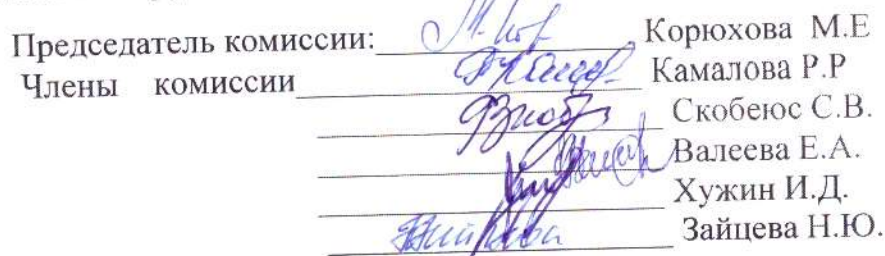 Председатель комиссии: Корюхова М.Е
Члены комиссии Камалова Р.Р
Скобеюс С.В.
Валеева Е.А.
Хужин И.Д.
Зайцева Н.Ю.